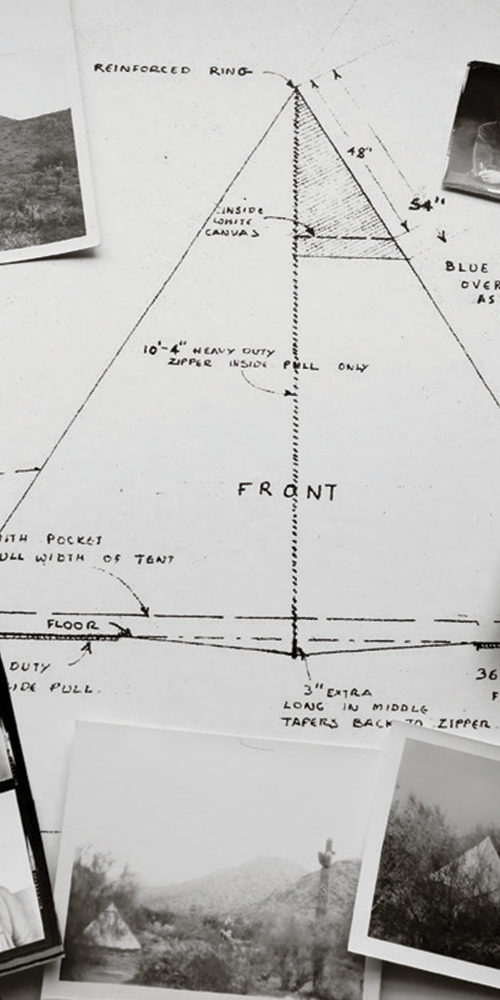 REINFORCED RING
48"
54"
INSIDE
WHITE
CANVAS
BLUE
OVER
AS
10'-4" HEAVY DUTY
ZIPPER INSIDE PULL ONLY
FRONT
ITH POCKET
ULL WIDTH OF TENT
FLOOR
DUTY
IDE PULL.
36
F
3" EXTRA
LONG IN MIDDLE
TAPERS BACK TO ZIPPER.